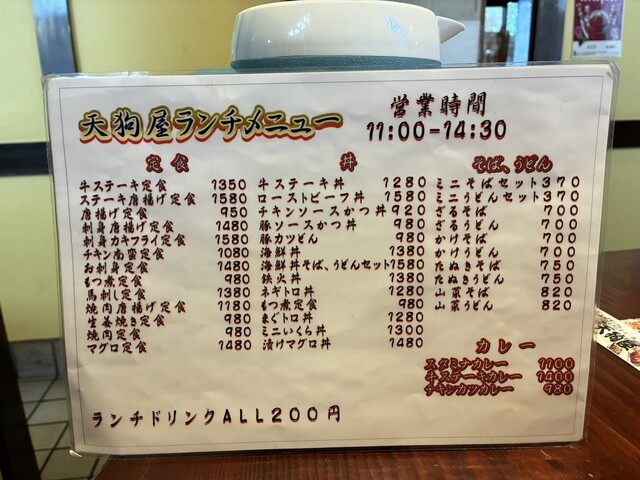 天狗屋ランチメニュー
営業時間
11:00-14:30
定食
牛ステーキ定食 1350
ステーキ唐揚げ定食 1580
唐揚げ定食 950
刺身唐揚げ定食 1480
刺身カキフライ定食 1580
チキン南蛮定食 1080
お刺身定食 1480
もつ煮定食 980
馬刺し定食 1380
焼肉唐揚げ定食 1180
生姜焼き定食 980
焼肉定食 980
マグロ定食 1480
丼
牛ステーキ丼 1280
ローストビーフ丼 1580
チキンソースかつ丼 920
豚ソースかつ丼 980
豚カツどん 980
海鮮丼 1380
海鮮丼そば、うどんセット1580
鉄火丼 1380
ネギトロ丼 1280
もつ煮定食 980
まぐトロ丼 1280
ミニいくら丼 1300
漬けマグロ丼 1480
そば、うどん
ミニそばセット 370
ミニうどんセット 370
ざるそば 700
ざるうどん 700
かけそば 700
かけうどん 700
たぬきそば 750
たぬきうどん 750
山菜そば 820
山菜うどん 820
カレー
スタミナカレー 1100
牛ステーキカレー 1400
チキンカツカレー 980
ランチドリンクALL200円